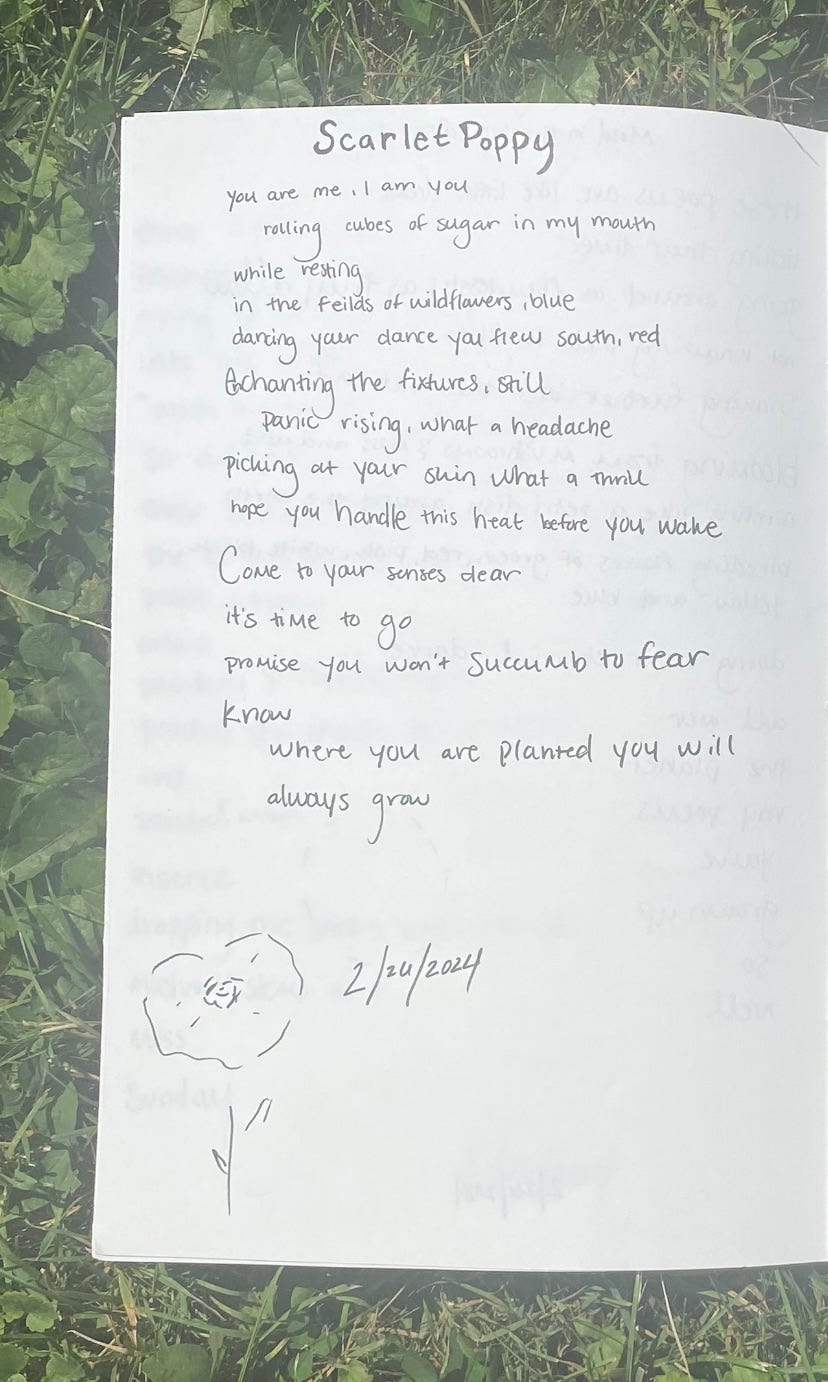 Scarlet Poppy
you are me, I am you
rolling cubes of sugar in my mouth
while resting
in the feilds of wildflowers, blue
dancing your dance you flew south, red
Enchanting the fixtures, still
panic rising, what a headache
picking at your skin what a thrill
hope you handle this heat before you wake
Come to your senses dear
it's time to go
promise you won't succumb to fear
know
where you are planted you will
always grow
2/24/2024